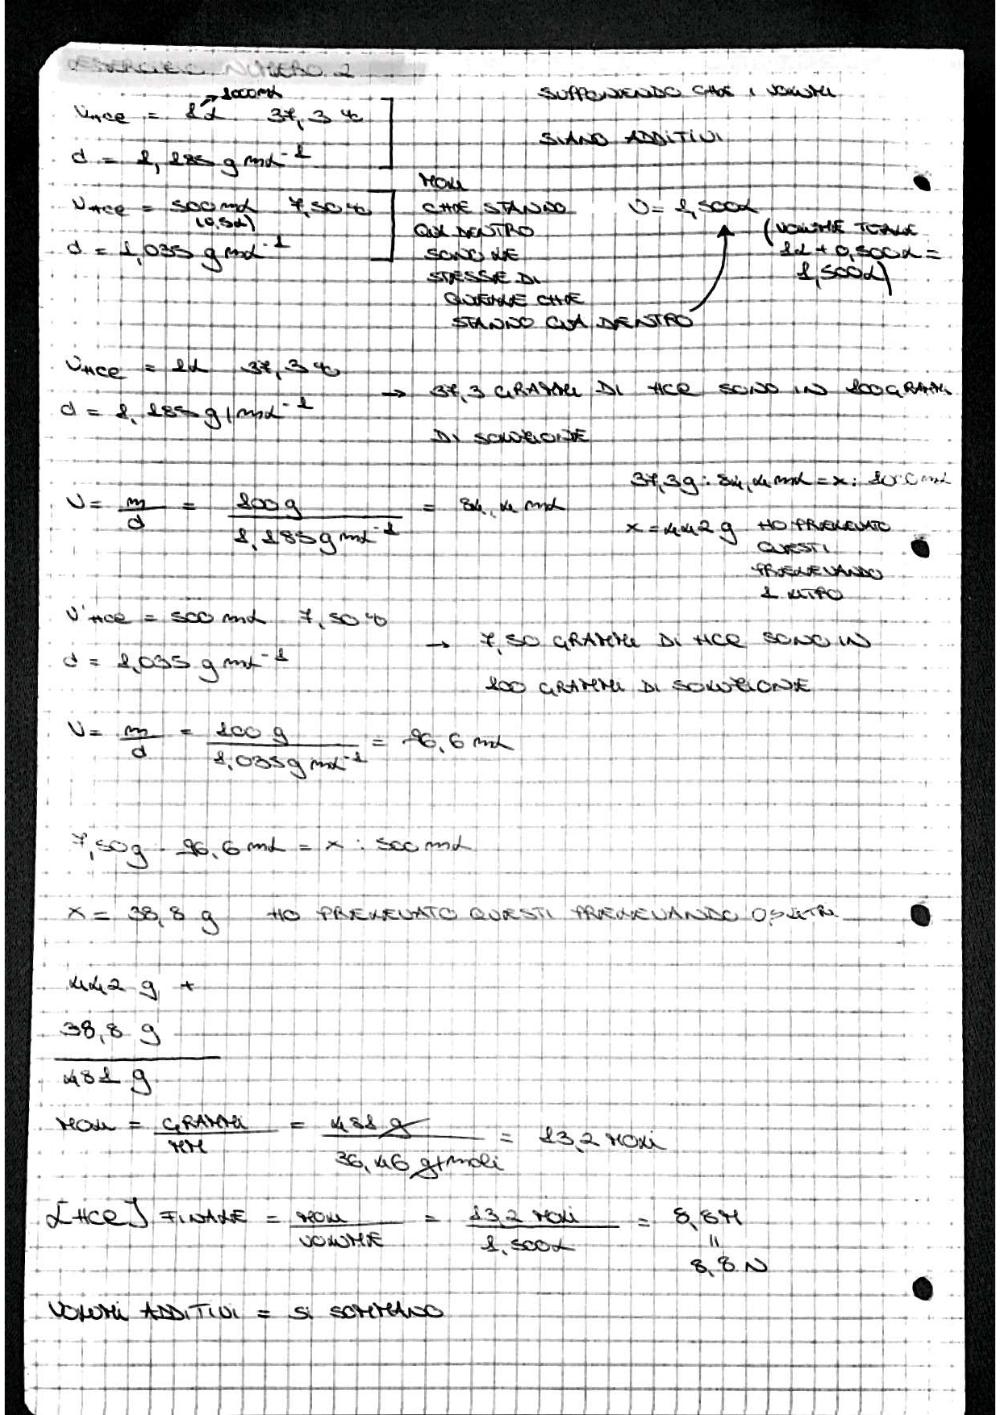 ESERCIZIO NUMERO 2
→ 1000 mL
VHCl = 1L 37,3 %
d = 1,185 g mL⁻¹
VHCl = 500 mL 7,50 %
(0,5L)
d = 1,035 g mL⁻¹
SUPPONENDO CHE I VOLUMI
SIANO ADDITIVI
MOLI
CHE STANNO
QUI DENTRO
SONO LE
STESSE DI
QUELLE CHE
STANNO QUA DENTRO
V = 1,500L
(VOLUME TOTALE
1L + 0,500L =
1,500L)
VHCl = 1L 37,3 %
d = 1,185 g/mL⁻¹
→ 37,3 GRAMMI DI HCl SONO IN 100 GRAMMI
DI SOLUZIONE
V = m/d = 100 g / 1,185 g mL⁻¹ = 84,4 mL
37,3 g : 84,4 mL = x : 1000 mL
x = 442 g HO PRELEVATO
QUESTI
PRELEVANDO
1 LITRO
V'HCl = 500 mL 7,50 %
d = 1,035 g mL⁻¹
→ 7,50 GRAMMI DI HCl SONO IN
100 GRAMMI DI SOLUZIONE
V = m/d = 100 g / 1,035 g mL⁻¹ = 96,6 mL
7,50 g 96,6 mL = x : 500 mL
x = 38,8 g HO PRELEVATO QUESTI PRELEVANDO 0,5 LITRI
442 g +
38,8 g
481 g
MOLI = GRAMMI / MM = 481 g / 36,46 g/moli = 13,2 MOLI
[HCl] FINALE = MOLI / VOLUME = 13,2 MOLI / 1,500L = 8,8 M
"
8,8 N
VOLUMI ADDITIVI = SI SOMMANO